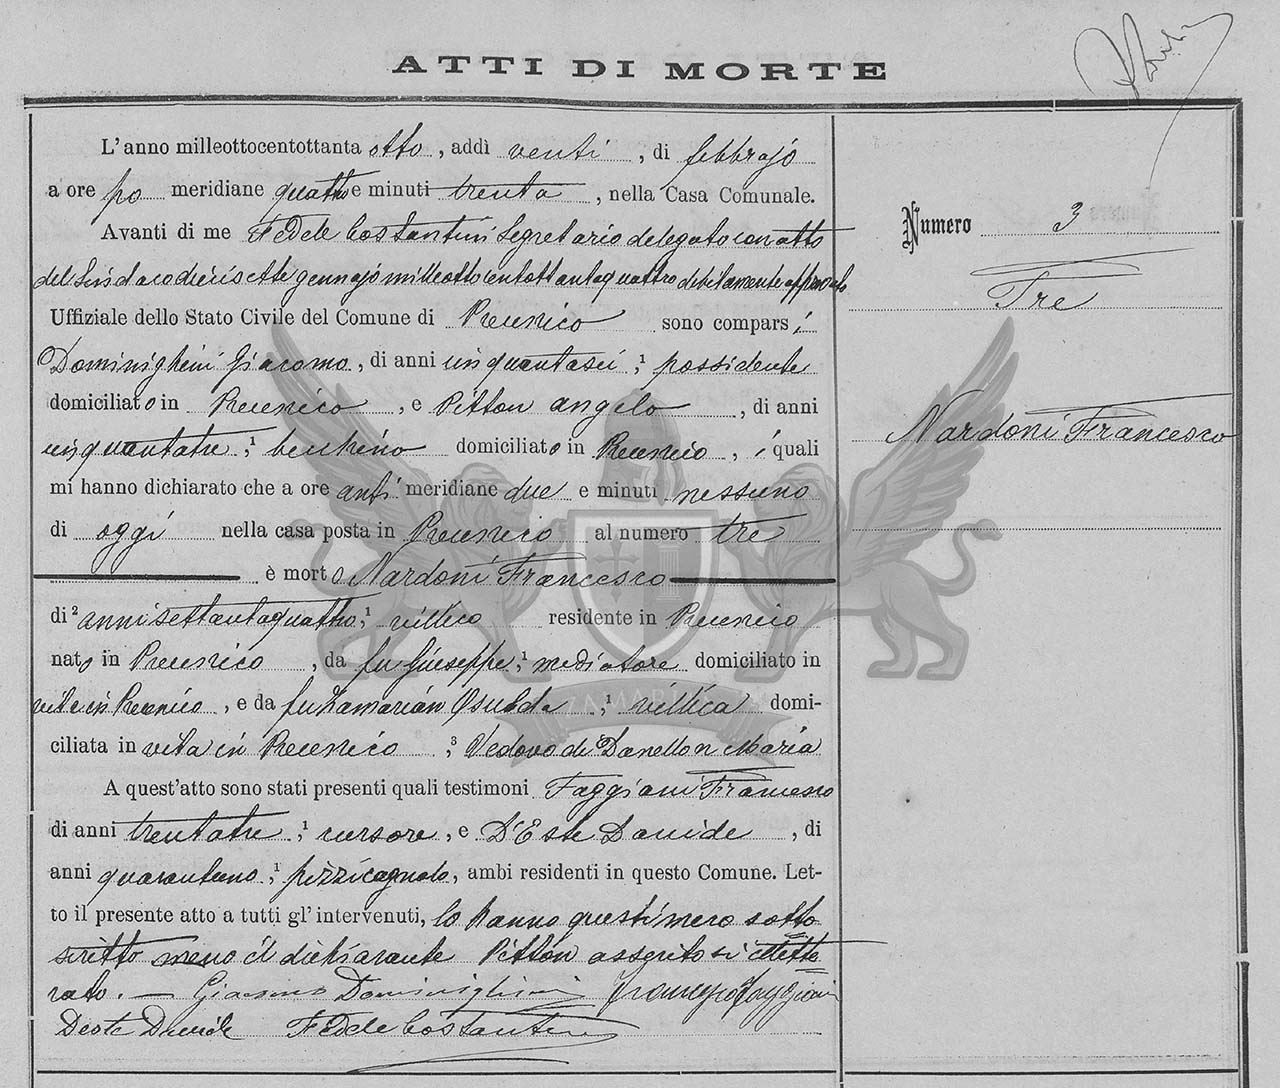 ATTI DI MORTE
L'anno milleottocentottanta otto, addì venti, di febbrajo
a ore po meridiane quattro e minuti trenta, nella Casa Comunale.
Avanti di me Fedele Costantini Segretario delegato con atto
del Sindaco diecisette gennajo milleottocentottantaquattro debitamente approvato
Uffiziale dello Stato Civile del Comune di Precenico sono comparsi
Dominighini Giacomo, di anni cinquantasei, ¹ possidente
domiciliato in Precenico, e Pitton Angelo, di anni
cinquantatre, ¹ becchino domiciliato in Precenico, i quali
mi hanno dichiarato che a ore anti meridiane due e minuti nessuno
di oggi nella casa posta in Precenico al numero tre
è morto Nardoni Francesco
di ² anni settantaquattro, ¹ villico residente in Precenico
nato in Precenico, da fu Giuseppe, ¹ mediatore domiciliato in
vita in Precenico, e da fu Zamarian Osualda, ¹ villica domi-
ciliata in vita in Precenico, ³ Vedovo di Danellon Maria
A quest'atto sono stati presenti quali testimoni Faggiani Francesco
di anni trentatre, ¹ cursore, e D'Este Davide, di
anni quarantuno, ¹ pizzicagnolo, ambi residenti in questo Comune. Let-
to il presente atto a tutti gl'intervenuti, lo hanno questi meco sotto
scritto meno il dichiarante Pitton asseritosi illette
rato. — Giacomo Dominighini Francesco Faggiani
Deste Davide Fedele Costantini
Numero 3
Tre
Nardoni Francesco